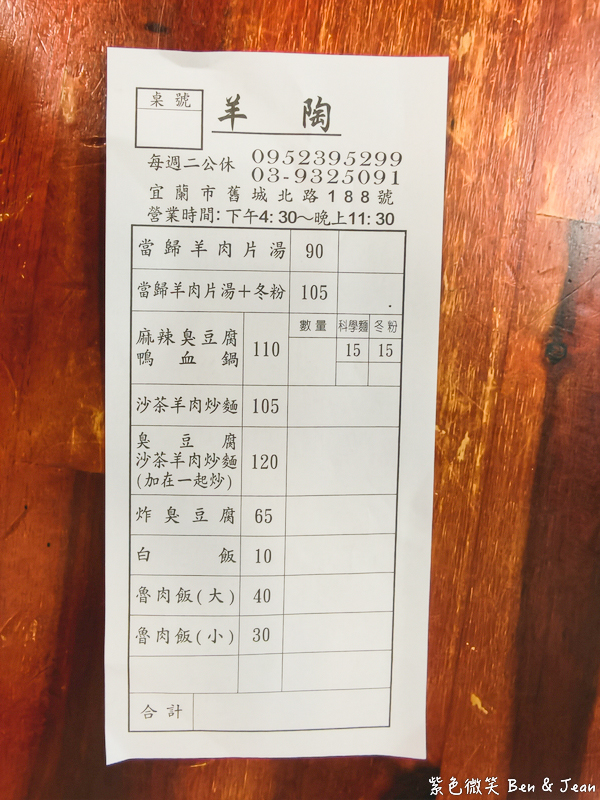 桌號
羊 陶
每週二公休 0952395299
03-9325091
宜蘭市舊城北路188號
營業時間:下午4:30～晚上11:30
當歸羊肉片湯 90
當歸羊肉片湯+冬粉 105
數量 科學麵 冬粉
麻辣臭豆腐
鴨血鍋 110 15 15
沙茶羊肉炒麵 105
臭豆腐
沙茶羊肉炒麵 120
(加在一起炒)
炸臭豆腐 65
白飯 10
魯肉飯(大) 40
魯肉飯(小) 30
合計
紫色微笑 Ben & Jean